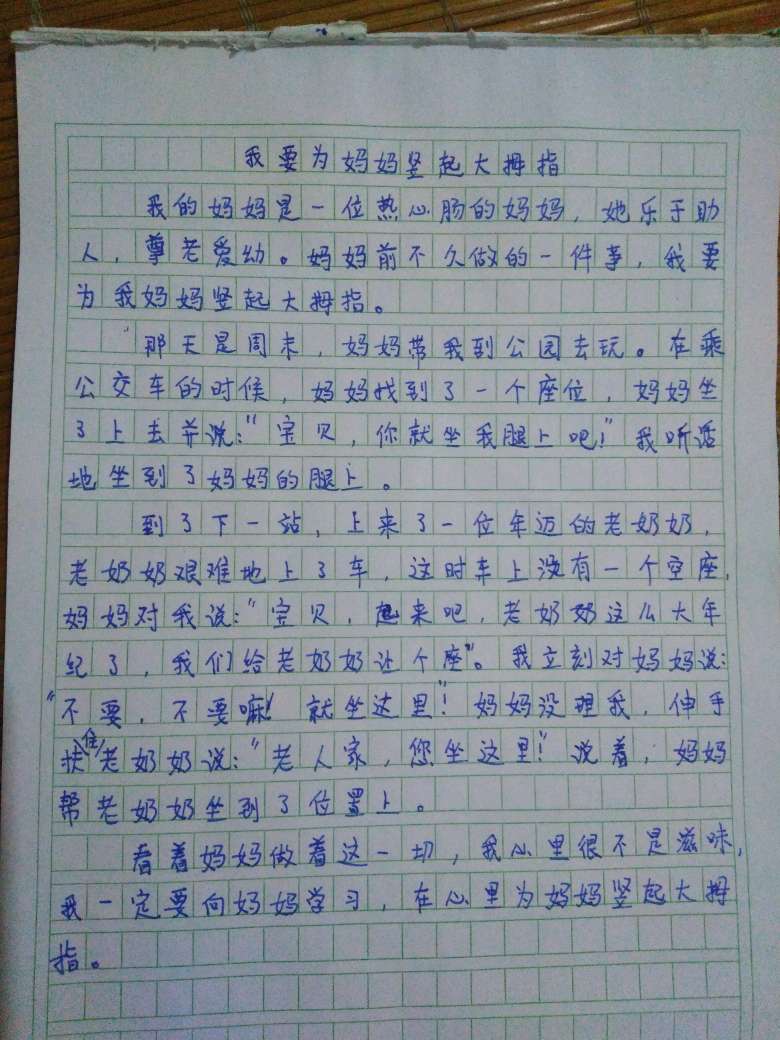 我要为妈妈竖起大拇指
我的妈妈是一位热心肠的妈妈，她乐于助
人，尊老爱幼。妈妈前不久做的一件事，我要
为我妈妈竖起大拇指。
那天是周末，妈妈带我到公园去玩。在乘
公交车的时候，妈妈找到了一个座位，妈妈坐
了上去并说：“宝贝，你就坐我腿上吧！”我听话
地坐到了妈妈的腿上。
到了下一站，上来了一位年迈的老奶奶，
老奶奶艰难地上了车，这时车上没有一个空座，
妈妈对我说：“宝贝，起来吧，老奶奶这么大年
纪了，我们给老奶奶让个座”。我立刻对妈妈说：
“不要，不要嘛！就坐这里”！妈妈没理我，伸手
扶住老奶奶说：“老人家，您坐这里！”说着，妈妈
帮老奶奶坐到了位置上。
看着妈妈做着这一切，我心里很不是滋味，
我一定要向妈妈学习，在心里为妈妈竖起大拇
指。